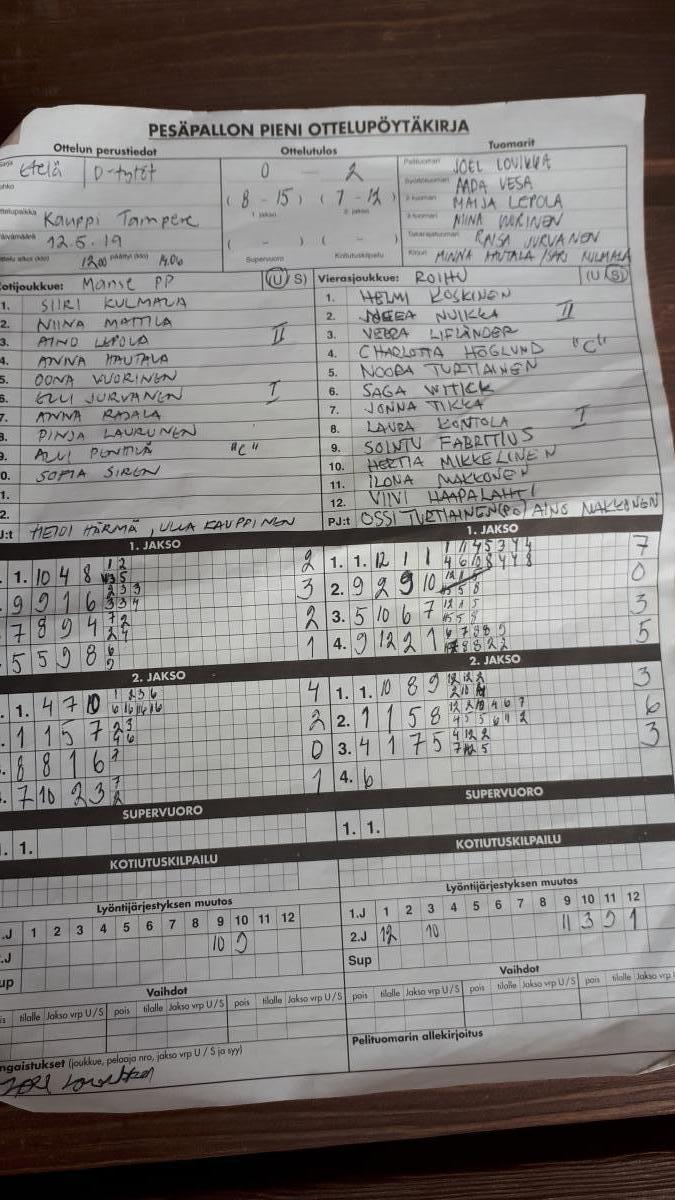 PESÄPALLON PIENI OTTELUPÖYTÄKIRJA
Ottelun perustiedot
Ottelutulos
Tuomarit
Etelä D-tytöt
0 - 2
(8 - 15) (7 - 12)
1. jakso 2. jakso
( - ) ( - )
Supervuoro Kotiutuskilpailu
Kauppi Tampere
12.5.19
1200 päättyi (klo) 14.06
Pelituomari JOEL LOVIKKA
AADA VESA
2-tuomari MAIJA LEPOLA
3-tuomari NIINA VUORINEN
Takarajatuomari RAISA JURVANEN
Kirjuri MINNA HAUTALA / SARI KULMALA
Kotijoukkue: Manse PP (U S)
1. SIIRI KULMALA
2. NIINA MATTILA
3. AINO LEPOLA II
4. ANNA HAUTALA
5. OONA VUORINEN
6. ELLI JURVANEN I
7. ANNA RAJALA
8. PINJA LAURUNEN
9. ALVI PENTTILÄ "C"
10. SOFIA SIREN
11.
12.
PJ:t HEIDI HÄRMÄ, ULLA KAUPPINEN
Vierasjoukkue: ROIHU (U S)
1. HELMI KOSKINEN
2. NEEA NUIKKA II
3. VEERA LIFLÄNDER
4. CHARLOTTA HÖGLUND "C"
5. NOORA TURTIAINEN
6. SAGA WITICK
7. JONNA TIKKA
8. LAURA KONTOLA I
9. SOINTU FABRITIUS
10. HERTTA MIKKELINEN
11. ILONA MAKKONEN
12. VIIVI HAAPALAHTI
PJ:t OSSI TURTIAINEN (PO) AINO MAKKONEN
1. JAKSO
1. 10 4 8 2
9 9 1 6 3
7 8 9 4 2
5 5 9 8 1
2. JAKSO
1. 4 7 10 4
1 1 5 7 2
8 8 1 6 0
7 10 2 3 1
SUPERVUORO
1. 1.
KOTIUTUSKILPAILU
Lyöntijärjestyksen muutos
1.J 1 2 3 4 5 6 7 8 9 10 11 12
2.J 10 9
Sup
Vaihdot
pois tilalle Jakso vrp U/S pois tilalle Jakso vrp U/S pois tilalle Jakso vrp U/S
Rangaistukset (joukkue, pelaaja nro, jakso vrp U / S ja syy)
1. JAKSO
1. 1. 12 1 1 7
2. 9 2 9 10 0
3. 5 10 6 7 3
4. 9 12 2 1 5
2. JAKSO
1. 1. 10 8 9 3
2. 1 1 5 8 6
3. 4 1 7 5 3
4. 6
SUPERVUORO
1. 1.
KOTIUTUSKILPAILU
Lyöntijärjestyksen muutos
1.J 1 2 3 4 5 6 7 8 9 10 11 12
2.J 12 10 11 3 9 1
Sup
Vaihdot
pois tilalle Jakso vrp U/S pois tilalle Jakso vrp U/S pois tilalle Jakso vrp
Pelituomarin allekirjoitus